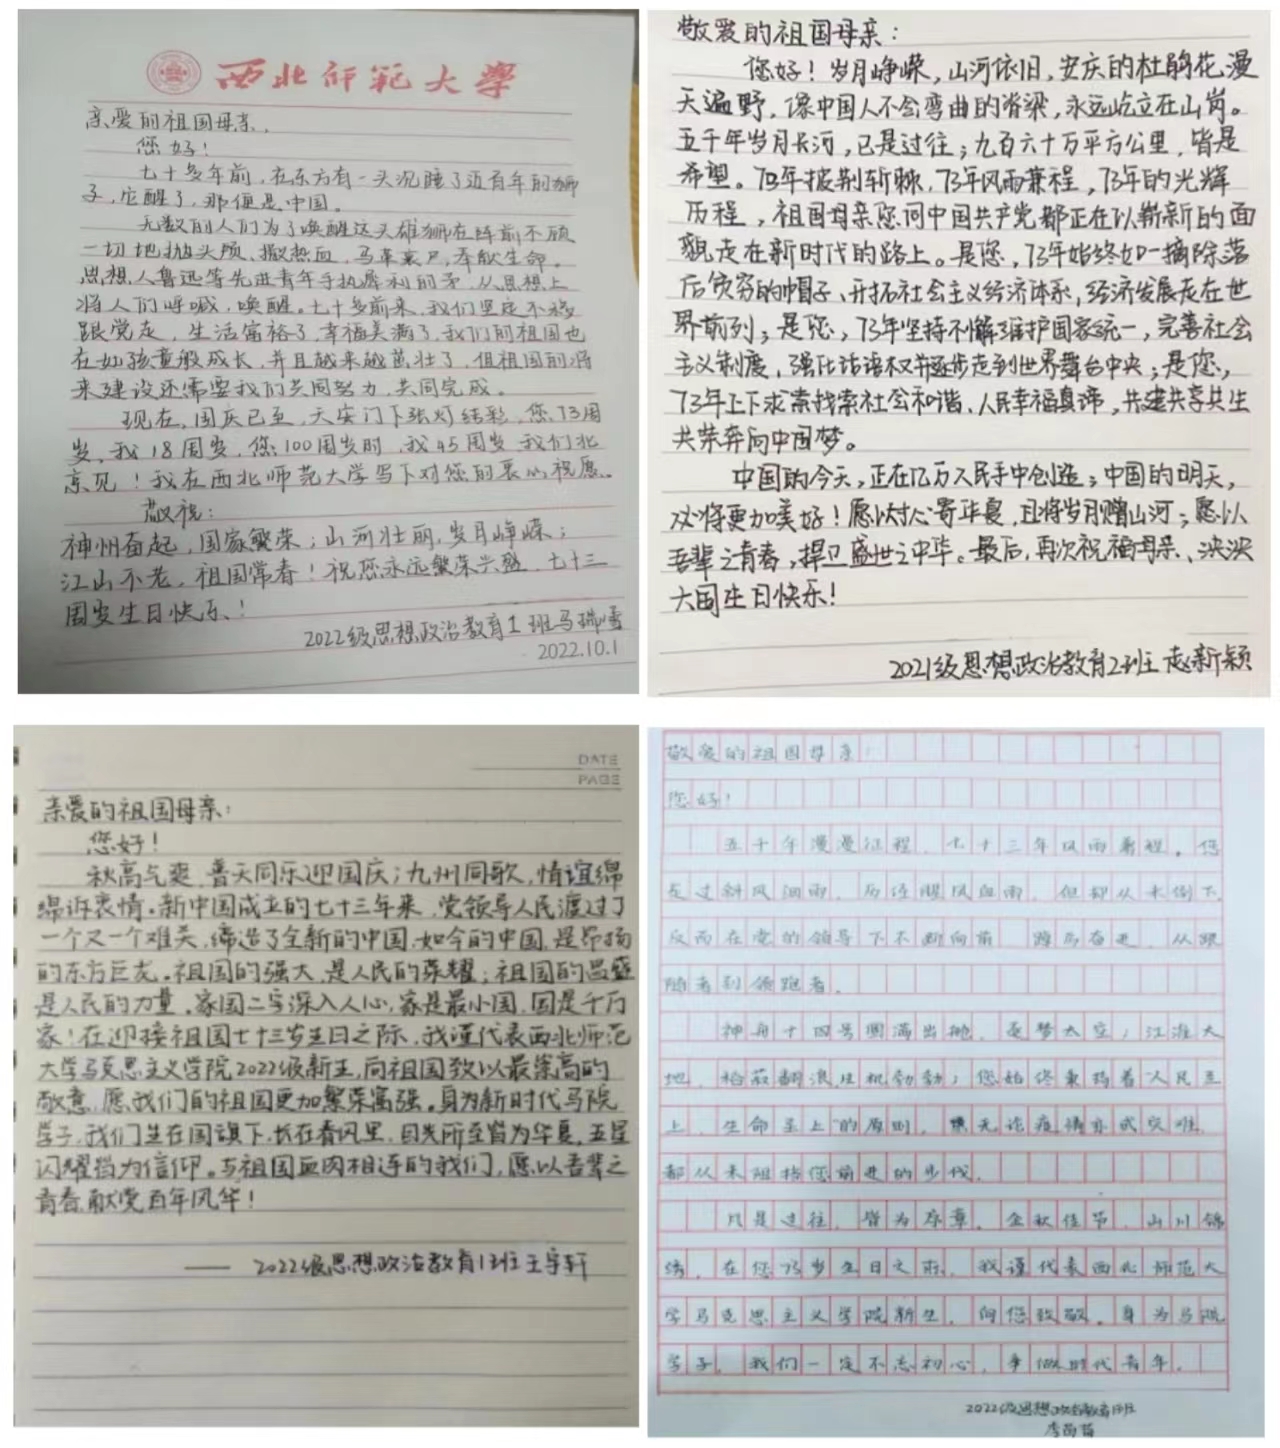 西北师范大学
亲爱的祖国母亲,
您好!
七十多年前,在东方有一头沉睡了近百年的狮
子,它醒了,那便是中国。
无数的人们为了唤醒这头雄狮在阵前不顾
一切地抛头颅、撒热血,马革裹尸,奉献生命。
思想人鲁迅等先进青年手执犀利的矛,从思想上
将人们呼喊,唤醒。七十多前来,我们坚定不移
跟党走,生活富裕了,幸福美满了,我们的祖国也
在如孩童般成长,并且越来越茁壮了,但祖国的将
来建设还需要我们共同努力,共同完成。
现在,国庆已至,天安门下张灯结彩,您73周
岁,我18周岁,您100周岁时,我45周岁,我们北
京见!我在西北师范大学写下对您的衷心祝愿。
敬祝:
神州奋起,国家繁荣;山河壮丽,岁月峥嵘;
江山不老,祖国常春!祝您永远繁荣兴盛,七十三
周岁生日快乐!
2022级思想政治教育1班马瑞
2022.10.1
敬爱的祖国母亲:
您好!岁月峥嵘,山河依旧,安庆的杜鹃花漫
天遍野,像中国人不会弯曲的脊梁,永远屹立在山岗。
五千年岁月长河,已是过往;九百六十万平方公里,皆是
希望。73年披荆斩棘,73年风雨兼程,73年的光辉
历程,祖国母亲您同中国共产党都正在以崭新的面
貌走在新时代的路上。是您,73年始终如一摘除落
后贫穷的帽子、开拓社会主义经济体系,经济发展走在世
界前列;是您,73年坚持不懈维护国家统一,完善社会
主义制度,强化话语权并逐步走到世界舞台中央;是您,
73年上下求索找索社会和谐、人民幸福真谛,共建共享共生
共荣奔向中国梦。
中国的今天,正在亿万人民手中创造;中国的明天,
必将更加美好!愿以寸心寄华夏,且将岁月赠山河;愿以
吾辈之青春,捍卫盛世之中华。最后,再次祝福母亲、泱泱
大国生日快乐!
2021级思想政治教育2班 赵新颖
DATE
PAGE
亲爱的祖国母亲:
您好!
秋高气爽,普天同乐迎国庆;九州同歌,情谊绵
绵诉衷情。新中国成立的七十三年来,党领导人民渡过了
一个又一个难关,缔造了全新的中国,如今的中国,是昂扬
的东方巨龙。祖国的强大,是人民的荣耀;祖国的昌盛
是人民的力量。家国二字深入人心,家是最小国,国是千万
家!在迎接祖国七十三岁生日之际,我谨代表西北师范
大学马克思主义学院2022级新生,向祖国致以最崇高的
敬意,愿我们的祖国更加繁荣富强。身为新时代马院
学子,我们生在国旗下,长在春风里,目光所至皆为华夏,五星
闪耀皆为信仰。与祖国血肉相连的我们,愿以吾辈之
青春,献党百年风华!
—— 2022级思想政治教育1班王宇轩
敬爱的祖国母亲:
您好!
五千年漫漫征程,七十三年风雨兼程。您
走过斜风细雨,历经腥风血雨,但却从未倒下,
反而在党的领导下不断向前,踔厉奋进,从跟
随者到领跑者。
神舟十四号圆满出舱,逐梦太空;江淮大
地,稻菽翻浪,生机勃勃;您始终秉持着"人民至
上,生命至上"的原则,无论疫情亦或灾难,
都从未阻挡您前进的步伐。
凡是过往,皆为序章。金秋佳节,山川锦
绣,在您73岁生日之际,我谨代表西北师范大
学马克思主义学院新生,向您致敬。身为马院
学子,我们一定不忘初心,争做时代青年。
2022级思想政治教育1班
李